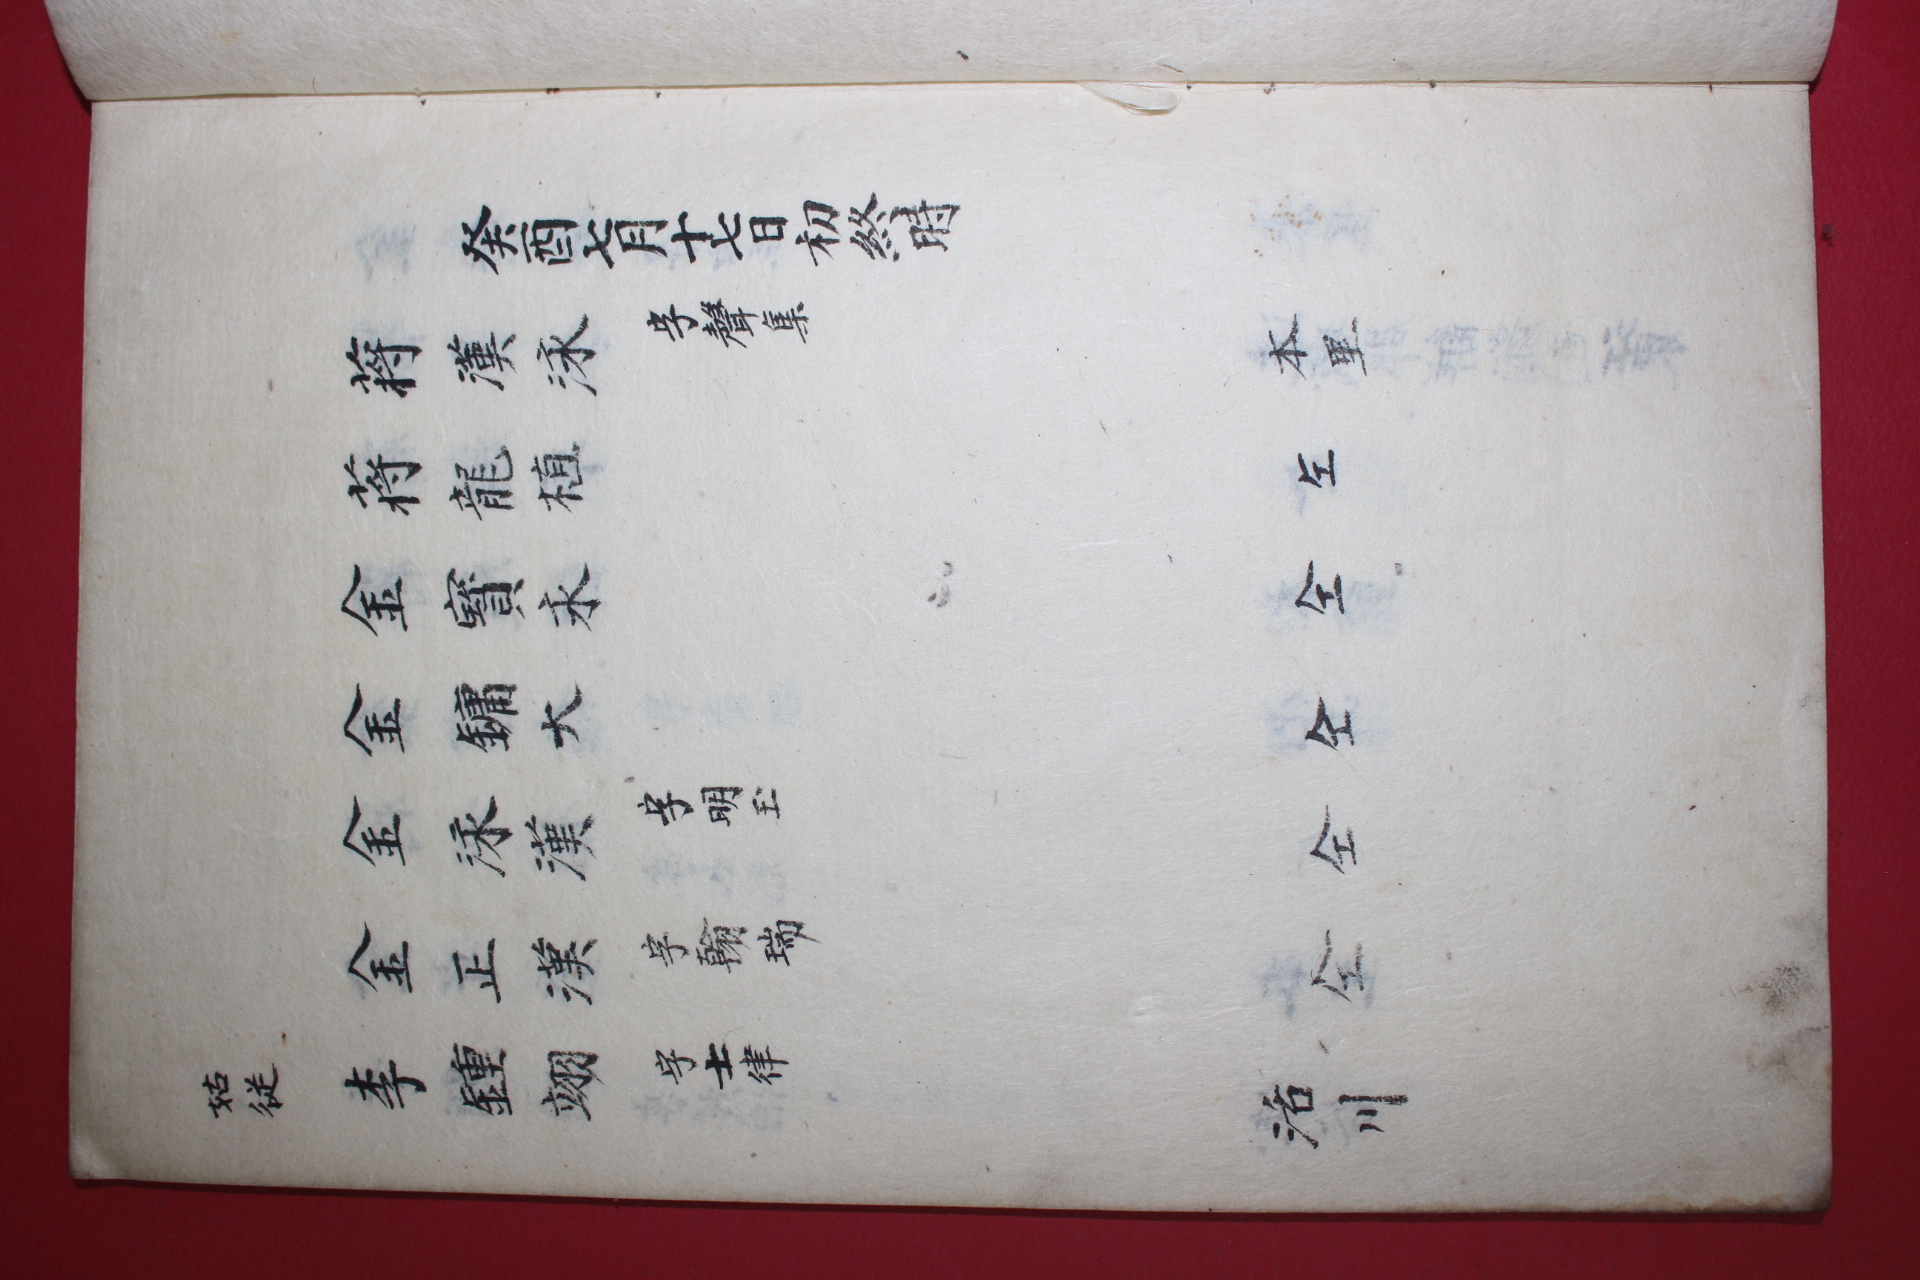 癸酉七月十七日初終時
蔣漢泳 字聲集 本里
蔣龍植 仝
金寶永 仝
金鏞大 仝
金泳漢 字明玉 仝
金正漢 字翰瑞 仝
姑從 李鍾翊 字士律 活川